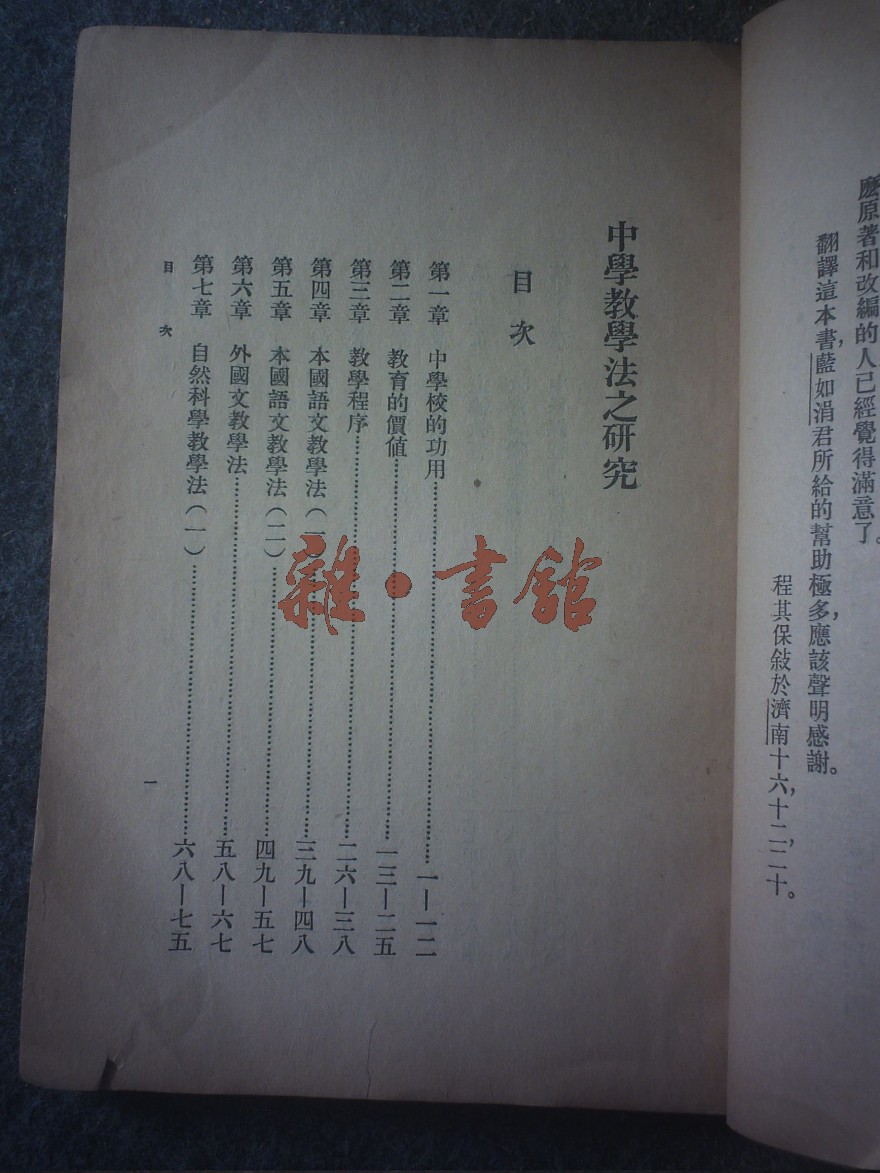 麽原著和改編的人已經覺得滿意了。
翻譯這本書，藍如涓君所給的幫助極多，應該聲明感謝。
程其保敍於濟南十六，十二，二十。
中學教學法之研究
目次
第一章 中學校的功用……一—一二
第二章 教育的價值……一三—二五
第三章 教學程序……二六—三八
第四章 本國語文教學法（一）……三九—四八
第五章 本國語文教學法（二）……四九—五七
第六章 外國文教學法……五八—六七
第七章 自然科學教學法（一）……六八—七五
目次
一
雜·書館